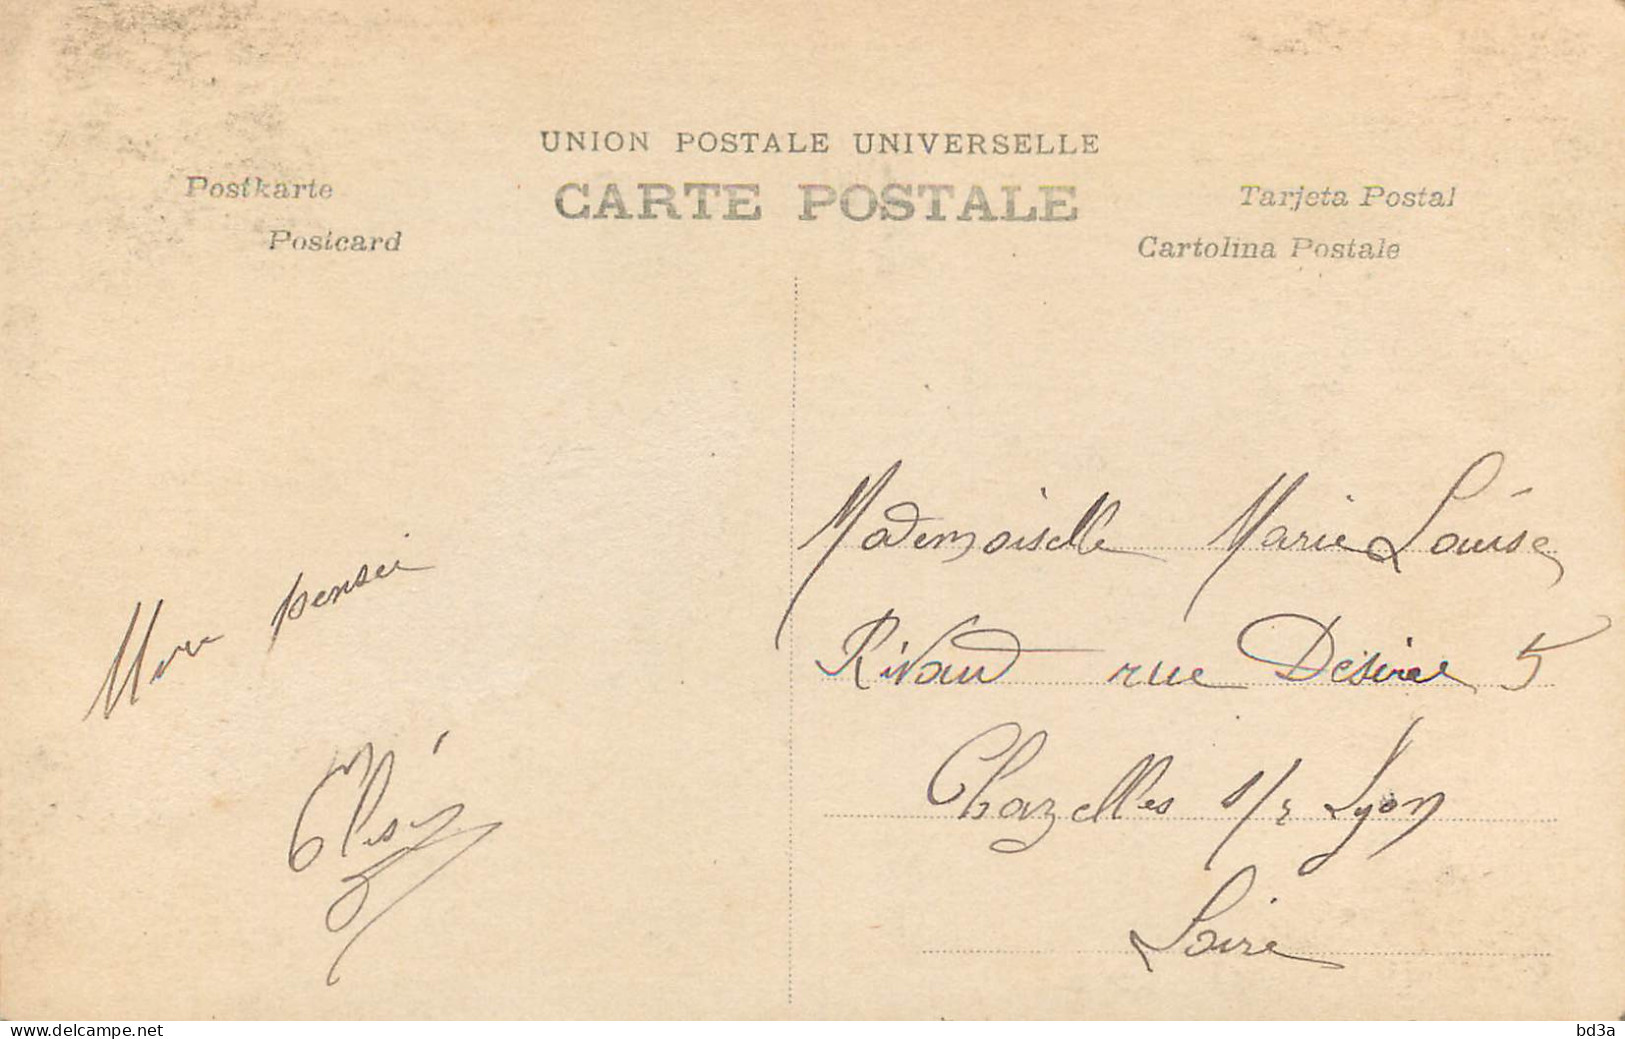 UNION POSTALE UNIVERSELLE
CARTE POSTALE
Postkarte
Postcard
Tarjeta Postal
Cartolina Postale
Mademoiselle Marie Louise
Rivaud rue Desiree 5
Chazelles s/r Lyon
Loire
www.delcampe.net
bd3a